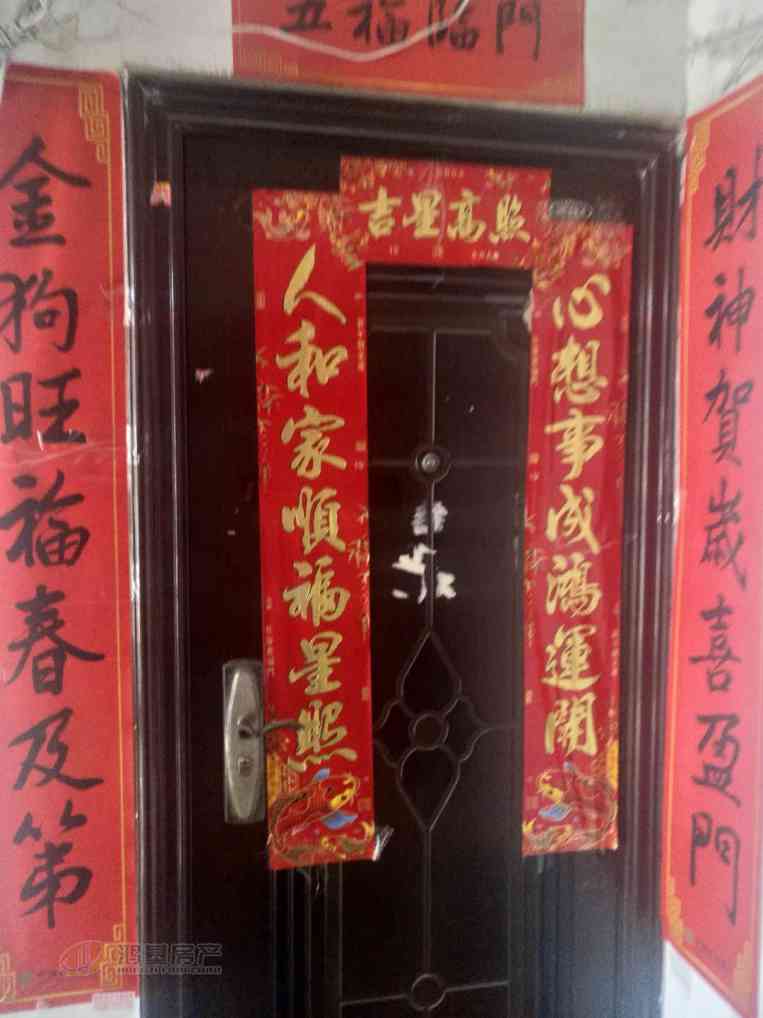 五福臨門
吉星高照
財神賀歲喜盈門
金狗旺福春及第
心想事成鴻運開
人和家順福星照
鸿基房产